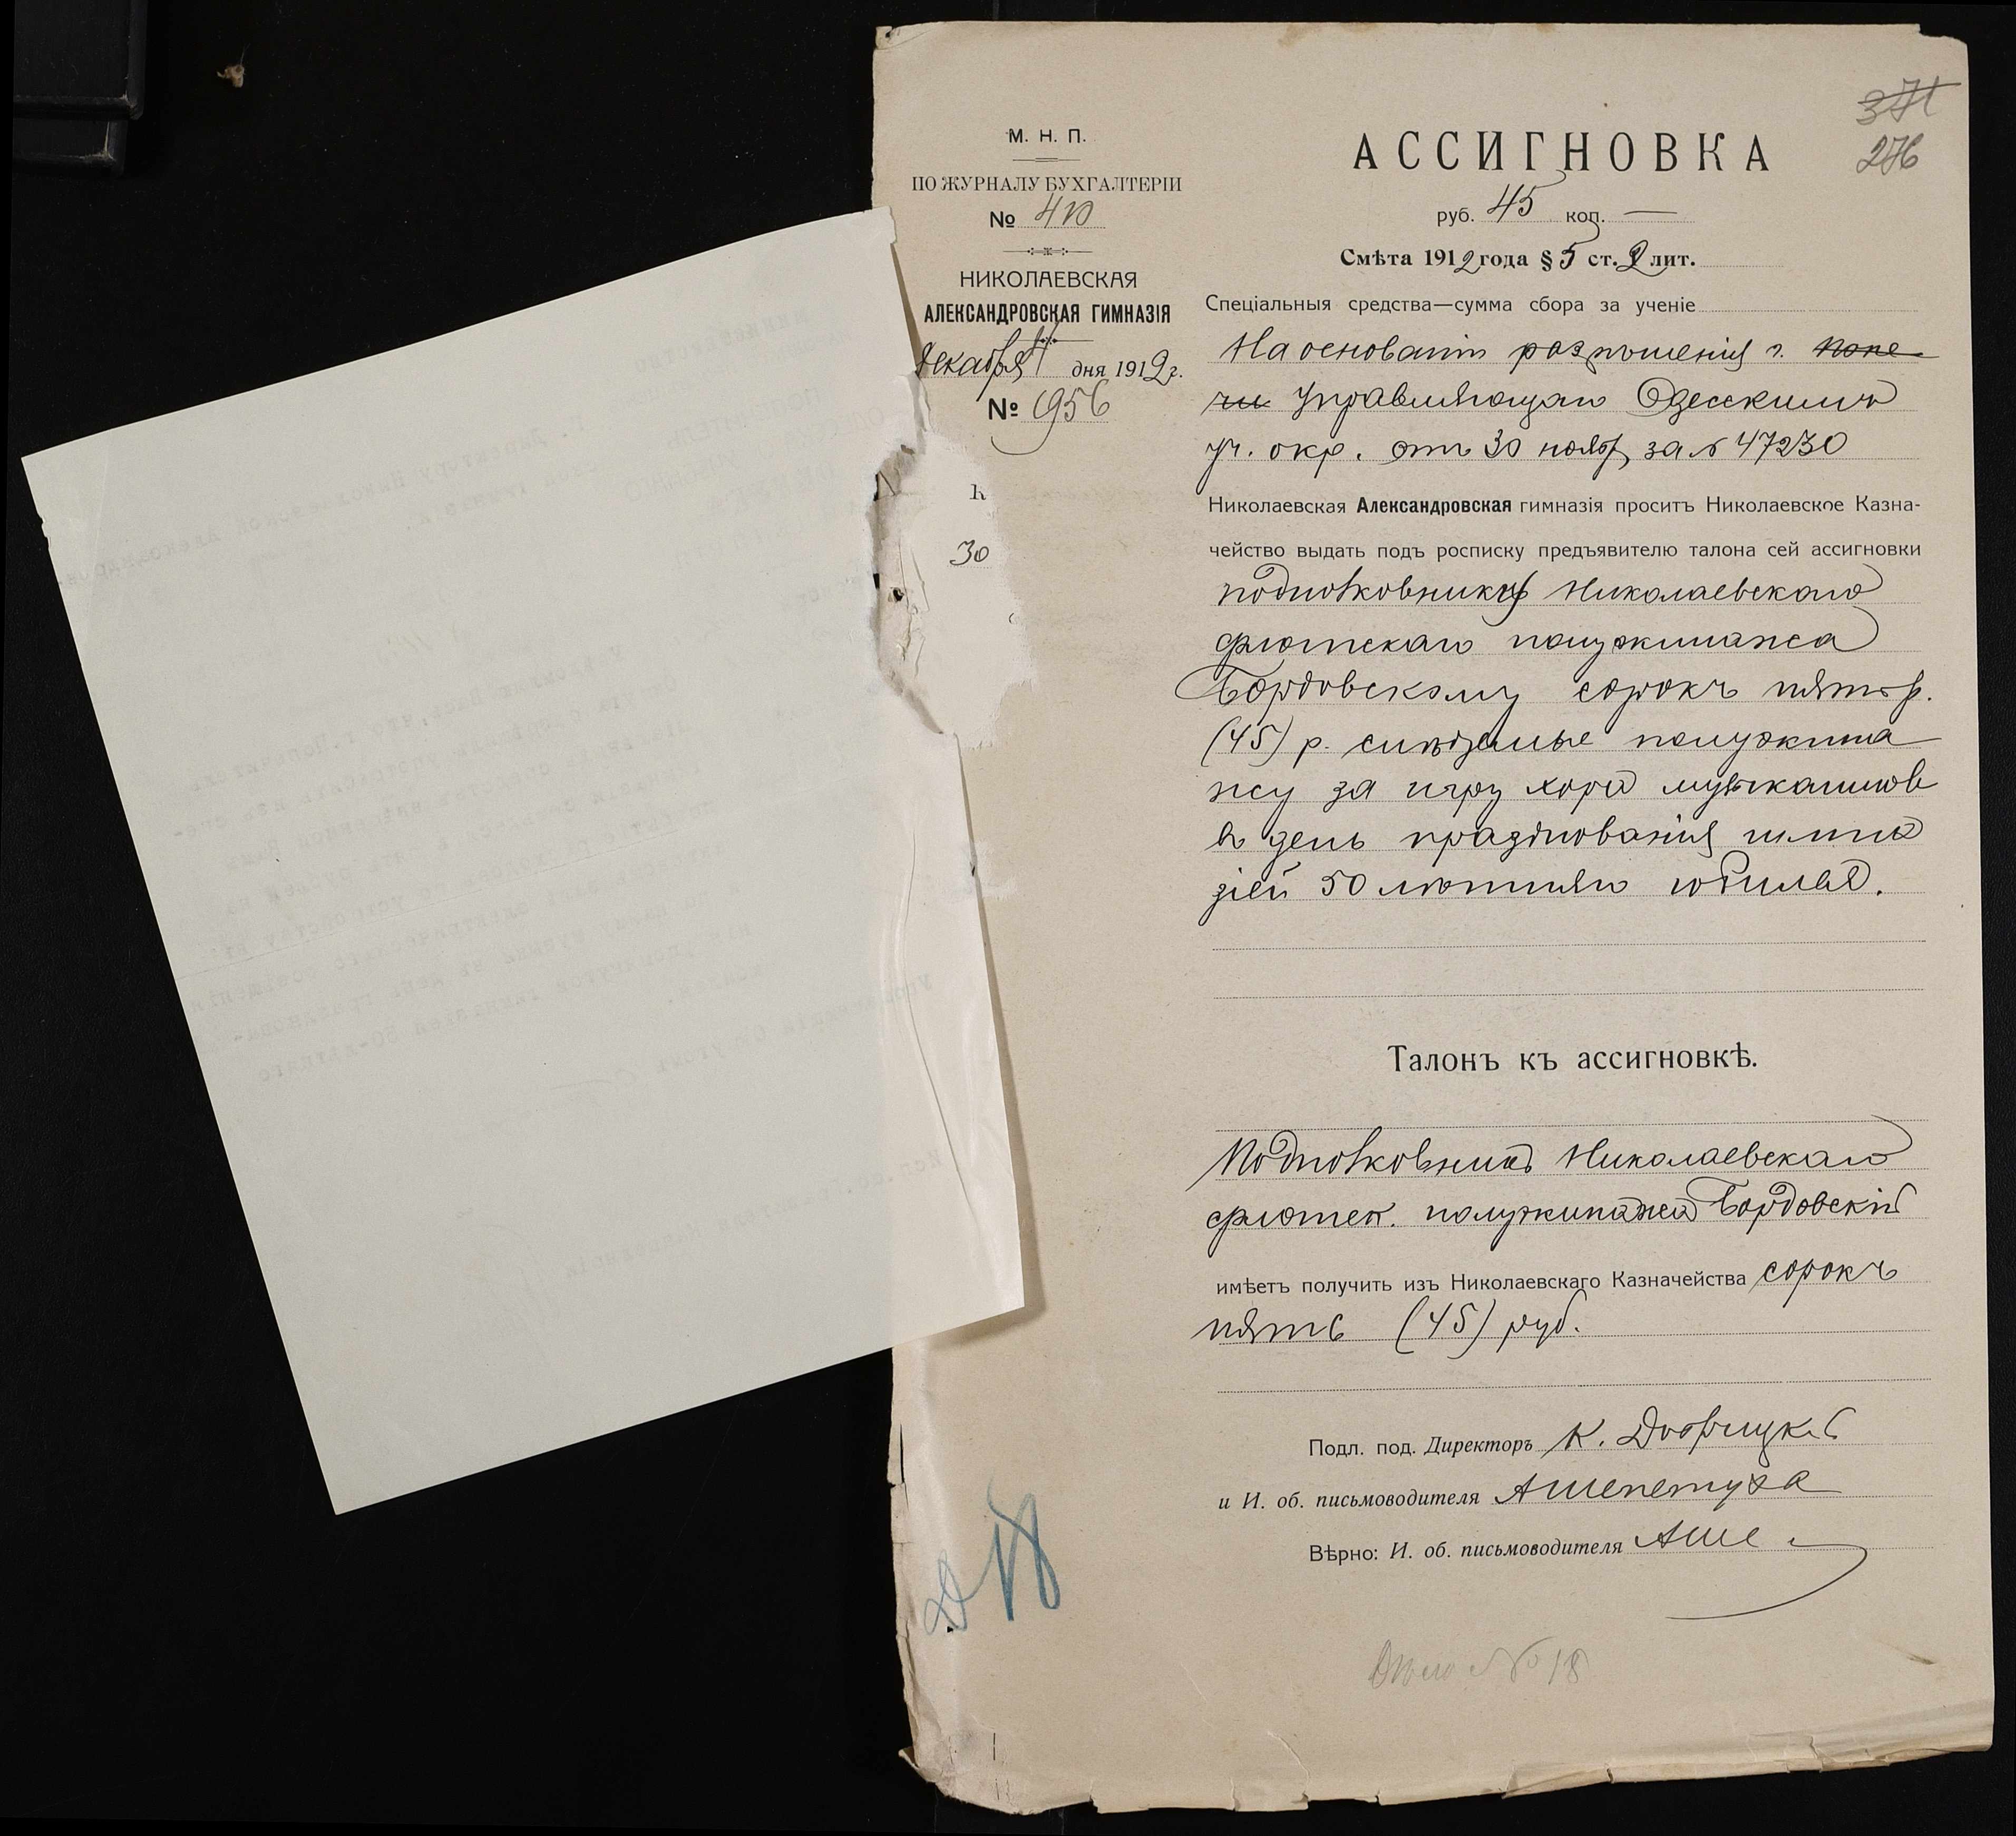 М. Н. П.
ПО ЖУРНАЛУ БУХГАЛТЕРІИ
№ 410
НИКОЛАЕВСКАЯ
АЛЕКСАНДРОВСКАЯ ГИМНАЗІЯ
Декабря 4 дня 1912 г.
№ 1956
30
371
276
АССИГНОВКА
руб. 45 коп. —
Смѣта 1912 года § 5 ст. 2 лит.
Спеціальныя средства—сумма сбора за ученіе
На основаніи разрѣшенія г. попе-
чи управляющаго Одесскимъ
уч. окр. отъ 30 нояб. за № 47230
Николаевская Александровская гимназія проситъ Николаевское Казна-
чейство выдать подъ росписку предъявителю талона сей ассигновки
подполковнику Николаевскаго
флотскаго полуэкипажа
Бордовскому сорокъ пять р.
(45) р. слѣдуемые полуэкипа
жу за игру хора музыкантовъ
въ день празднованія гимна
зіей 50 лѣтняго юбилея.
Талонъ къ ассигновкѣ.
Подполковникъ Николаевскаго
флотск. полуэкипажа Бордовскій
имѣетъ получить изъ Николаевскаго Казначейства сорокъ
пять (45) руб.
Подл. под. Директоръ К.
и И. об. письмоводителя АШепетуха
Вѣрно: И. об. письмоводителя АШе
Д 18
Дѣло № 18